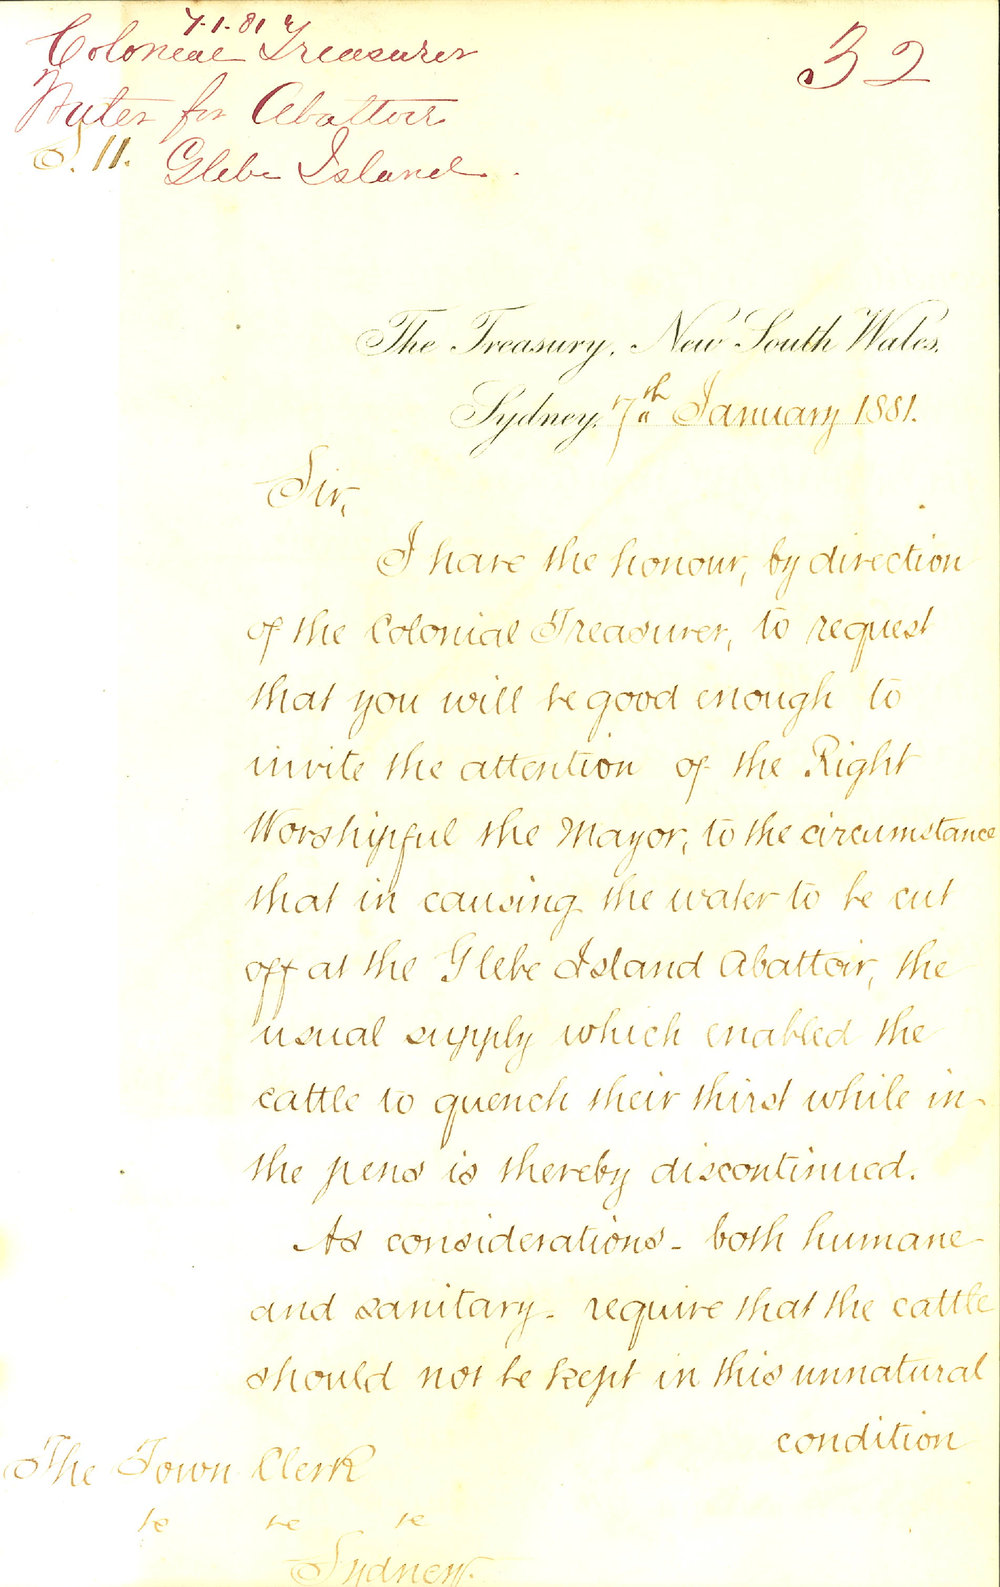 7.1.81
Colonial Treasurer
Water for Abattoir
S. 11. Glebe Island.
32
The Treasury, New South Wales,
Sydney, 7th January 1881.
Sir,
I have the honour, by direction
of the Colonial Treasurer, to request
that you will be good enough to
invite the attention of the Right
Worshipful the Mayor, to the circumstance
that in causing the water to be cut
off at the Glebe Island Abattoir, the
usual supply which enabled the
cattle to quench their thirst while in
the pens is thereby discontinued.
As considerations - both humane
and sanitary - require that the cattle
should not be kept in this unnatural
condition
The Town Clerk
Sydney.